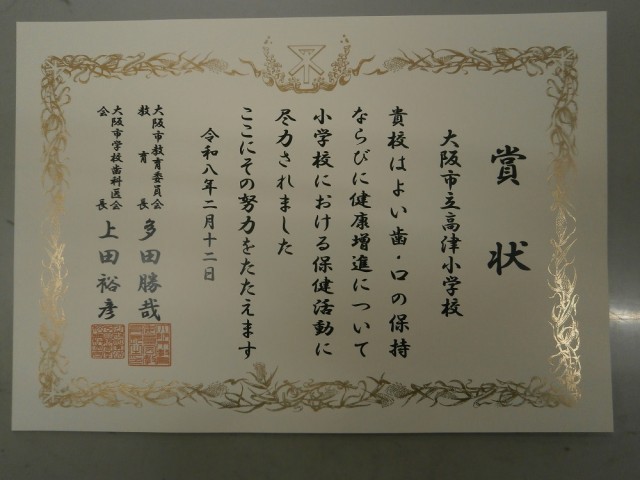 賞状
大阪市立高津小学校
貴校はよい歯・口の保持
ならびに健康増進について
小学校における保健活動に
尽力されました
ここにその努力をたたえます
令和八年二月十二日
大阪市教育委員会
教育長 多田勝哉
大阪市学校歯科医会
会長 上田裕彦